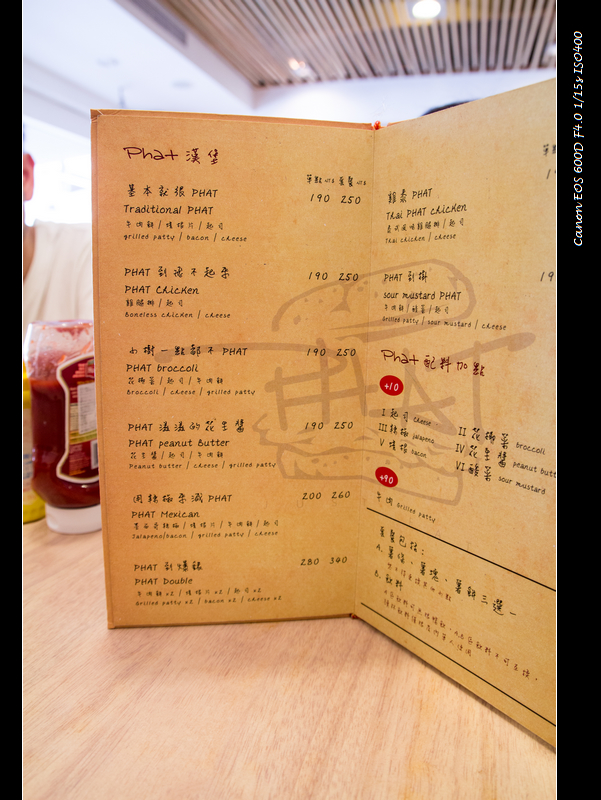 Phat 漢堡
單點 NT$ 套餐 NT$
基本款張 PHAT 190 250
Traditional PHAT
牛肉餅 / 燻培片 / 起司
grilled patty / bacon / cheese
PHAT 到飛不起來 190 250
PHAT Chicken
雞腿排 / 起司
Boneless chicken / cheese
小樹一點都不 PHAT 190 250
PHAT broccoli
花椰菜 / 起司 / 牛肉餅
Broccoli / cheese / grilled patty
PHAT 溢溢的花生醬 190 250
PHAT peanut Butter
花生醬 / 起司 / 牛肉餅
Peanut butter / cheese / grilled patty
用辣椒來減 PHAT 200 260
PHAT Mexican
墨西哥辣椒 / 燻培片 / 牛肉餅 / 起司
Jalapeno/bacon / grilled patty / cheese
PHAT 到爆錶 280 340
PHAT Double
牛肉餅 x2 / 燻培片 x2 / 起司 x2
Grilled patty x2 / bacon x2 / cheese x2
椒泰 PHAT
Thai PHAT chicken
泰式風味雞腿排 / 起司
Thai chicken / cheese
PHAT 到掛
sour mustard PHAT
牛肉餅 / 酸菜 / 起司
Grilled patty / sour mustard / cheese
Phat 配料加點
+10
I 起司 cheese
II 花椰菜 broccoli
III 辣椒 jalapeno
IV 花生醬 peanut butt
V 燻培 bacon
VI 酸菜 sour mustard
+90
牛肉 Grilled patty
套餐包括:
A. 薯條、薯塊、薯餅三選一
B. 飲料
Canon EOS 600D F4.0 1/15s ISO400